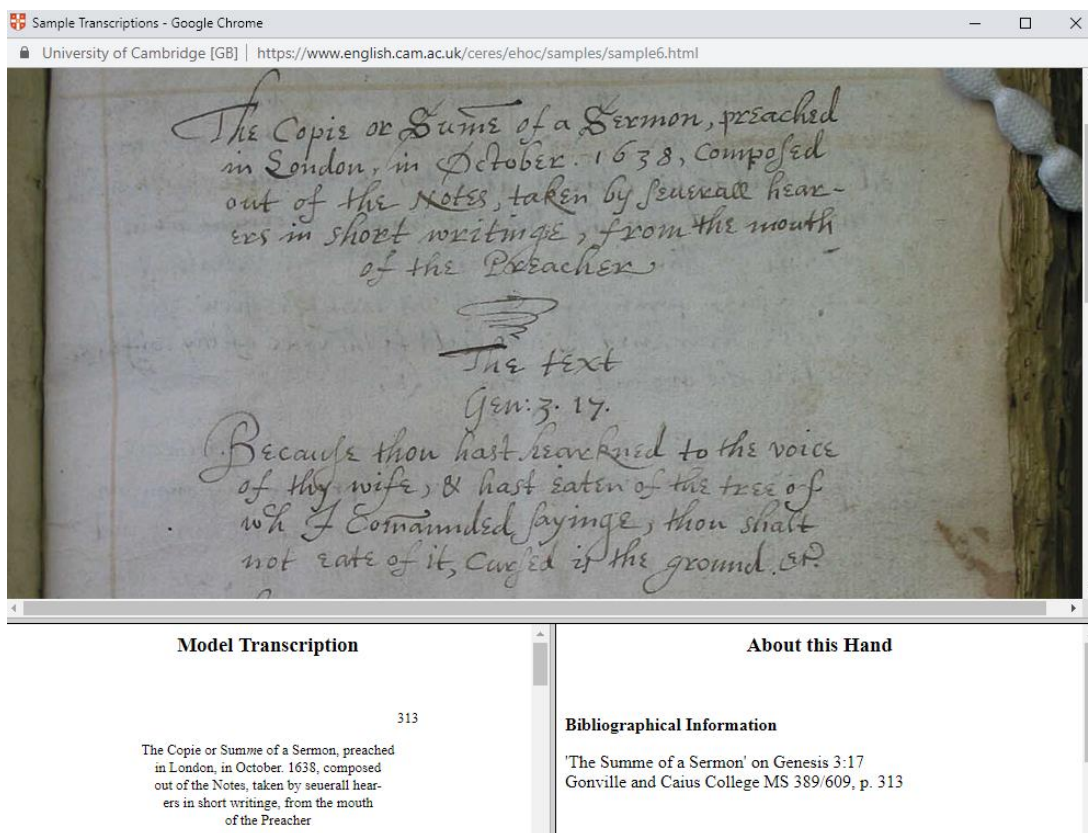 Sample Transcriptions - Google Chrome
University of Cambridge [GB] | https://www.english.cam.ac.uk/ceres/ehoc/samples/sample6.html
The Copie or Sum̄e of a Sermon, preached
in London, in October. 1638, Composed
out of the Notes, taken by seuerall hear-
ers in short writinge, from the mouth
of the Preacher
The text
Gen: 3. 17.
Because thou hast hearkned to the voice
of thy wife, & hast eaten of the tree of
wh I Com̄aunded sayinge, thou shalt
not eate of it, Cursed is the ground. &c.
Model Transcription
313
The Copie or Summe of a Sermon, preached
in London, in October. 1638, composed
out of the Notes, taken by seuerall hear-
ers in short writinge, from the mouth
of the Preacher
About this Hand
Bibliographical Information
'The Summe of a Sermon' on Genesis 3:17
Gonville and Caius College MS 389/609, p. 313